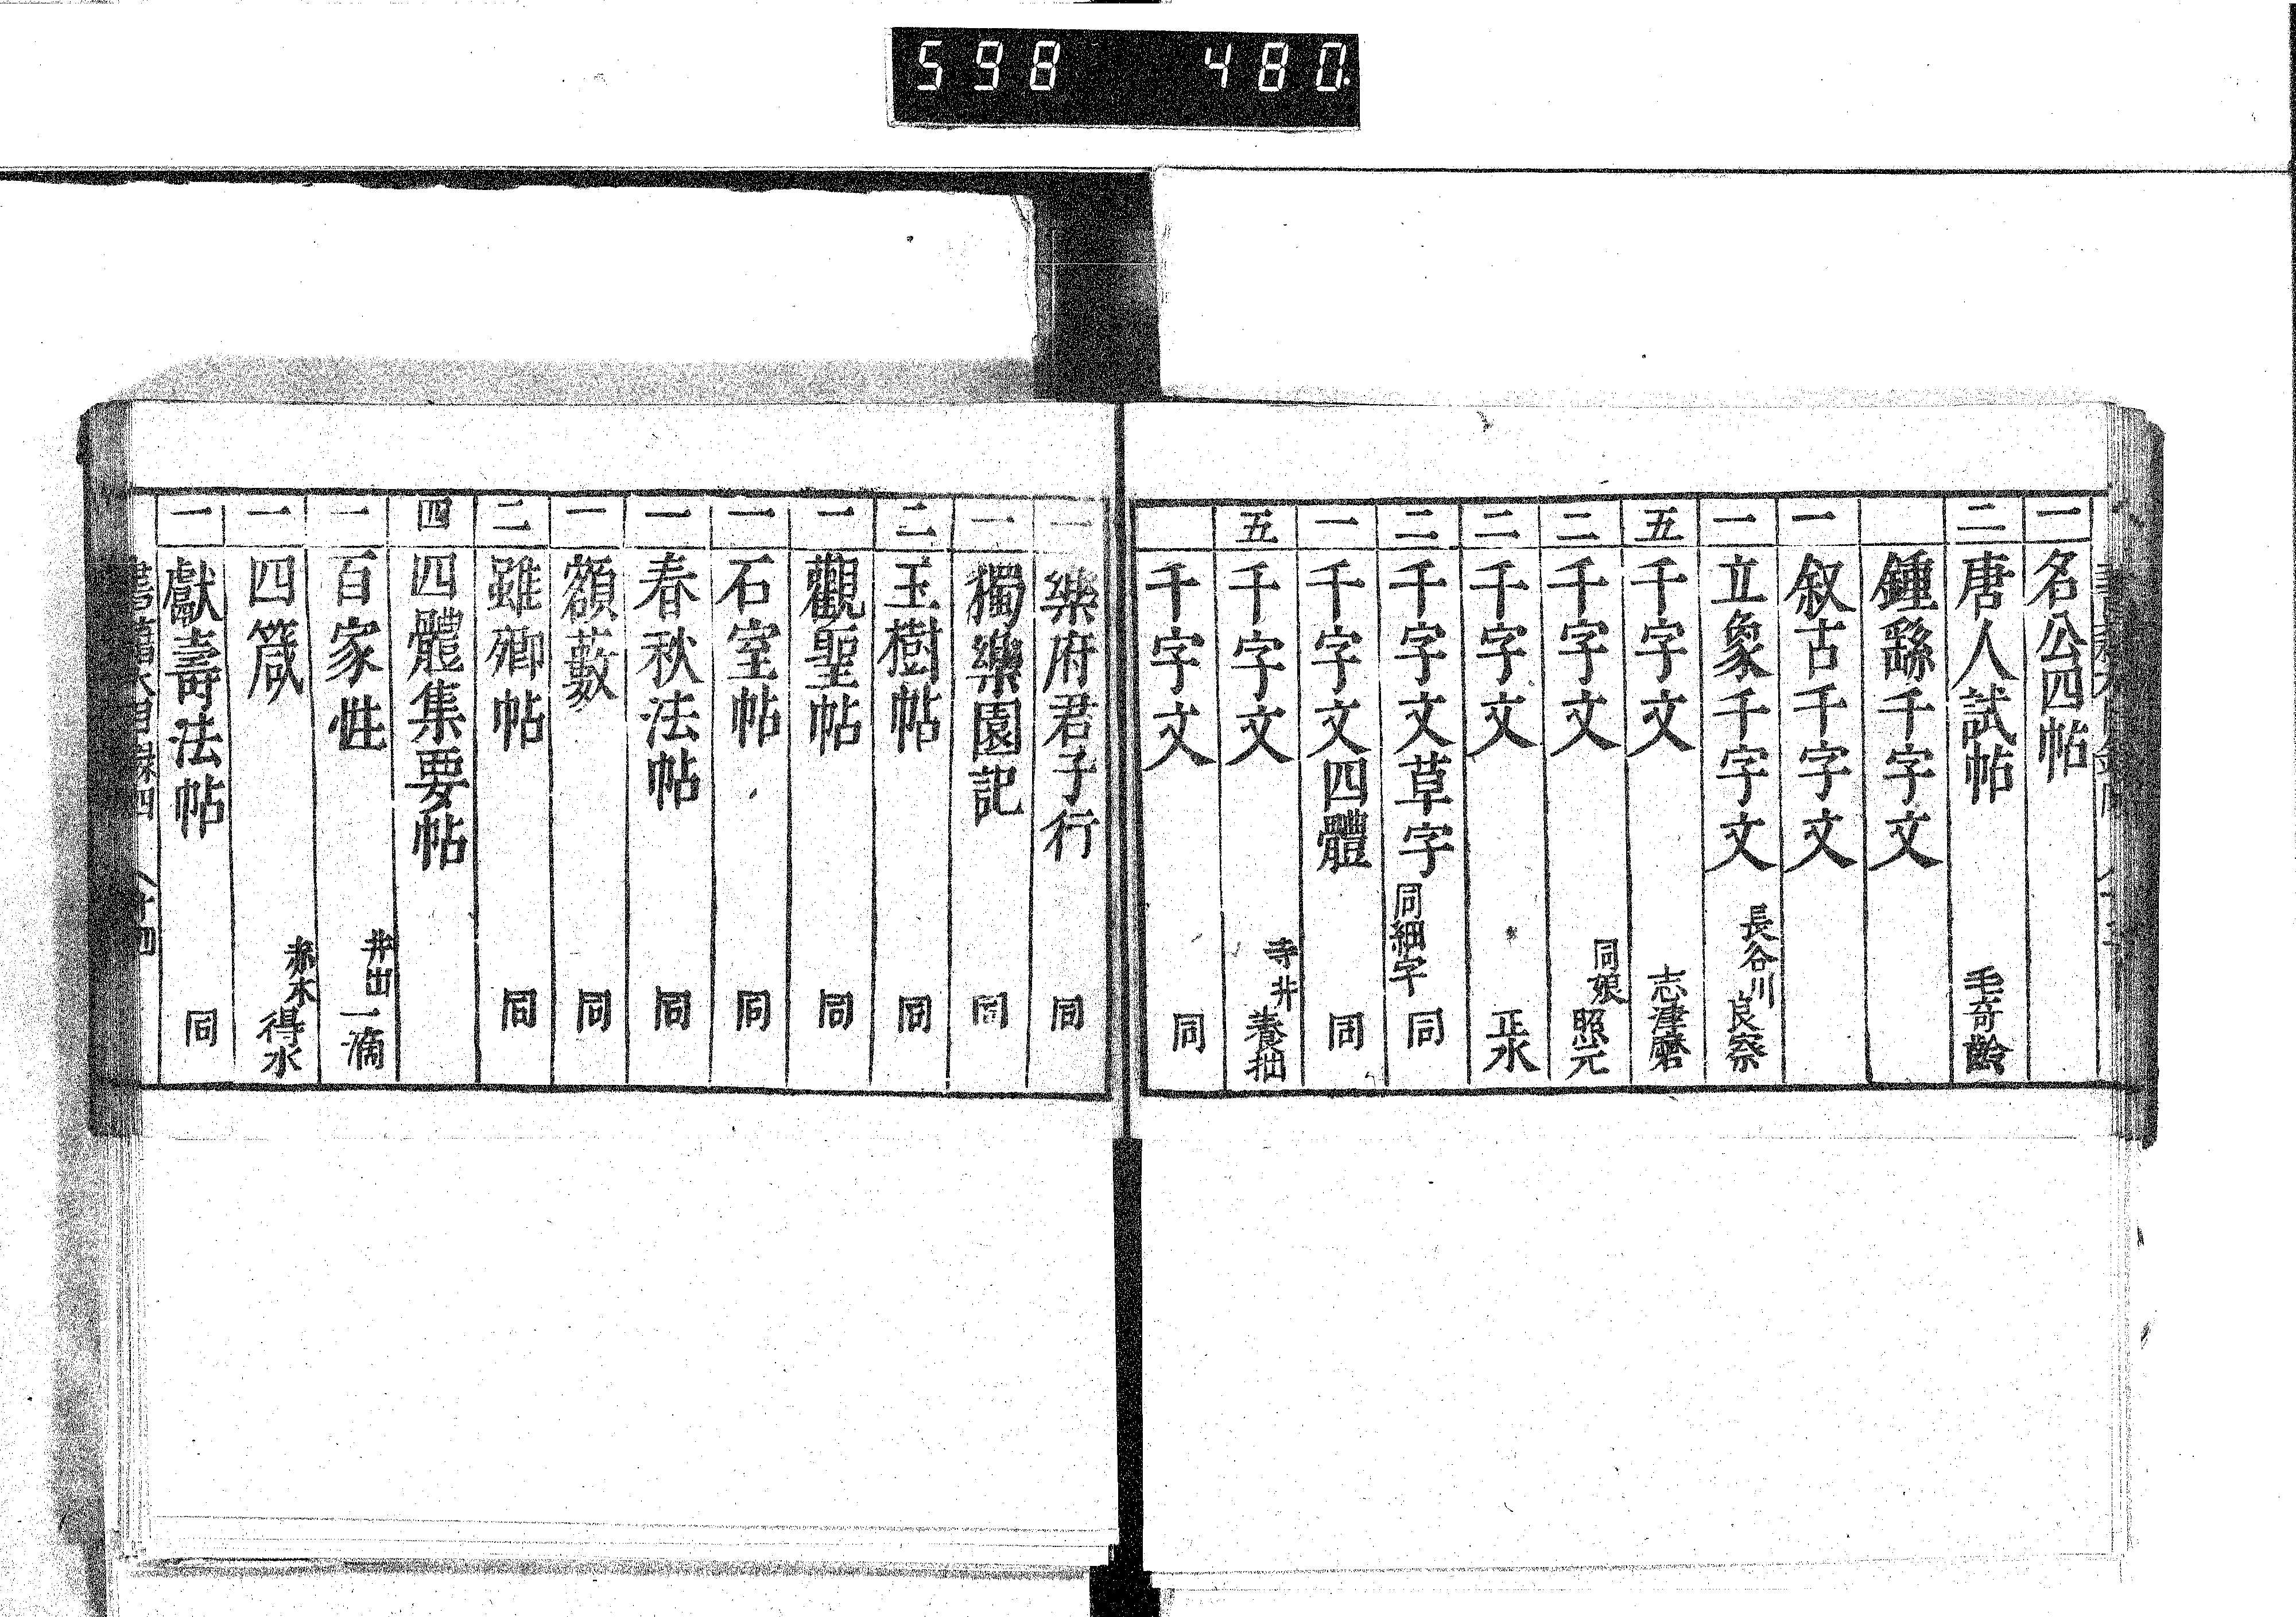 598 480.
一 名公四帖
二 唐人試帖 毛奇齡
鍾繇千字文
一 叙古千字文
一 立象千字文 長谷川良察
五 千字文 志津磨
三 千字文 同娘照元
二 千字文 正水
三 千字文草字 同細字 同
一 千字文四體 同
五 千字文 寺井養拙
千字文 同
一 樂府君子行 同
一 獨樂園記 同
二 玉樹帖 同
一 觀聖帖 同
一 石室帖 同
一 春秋法帖 同
一 額藪 同
二 雖卿帖 同
四 四體集要帖
一 百家性 井出一滴
一 四箴 赤水得水
一 獻壽法帖 同